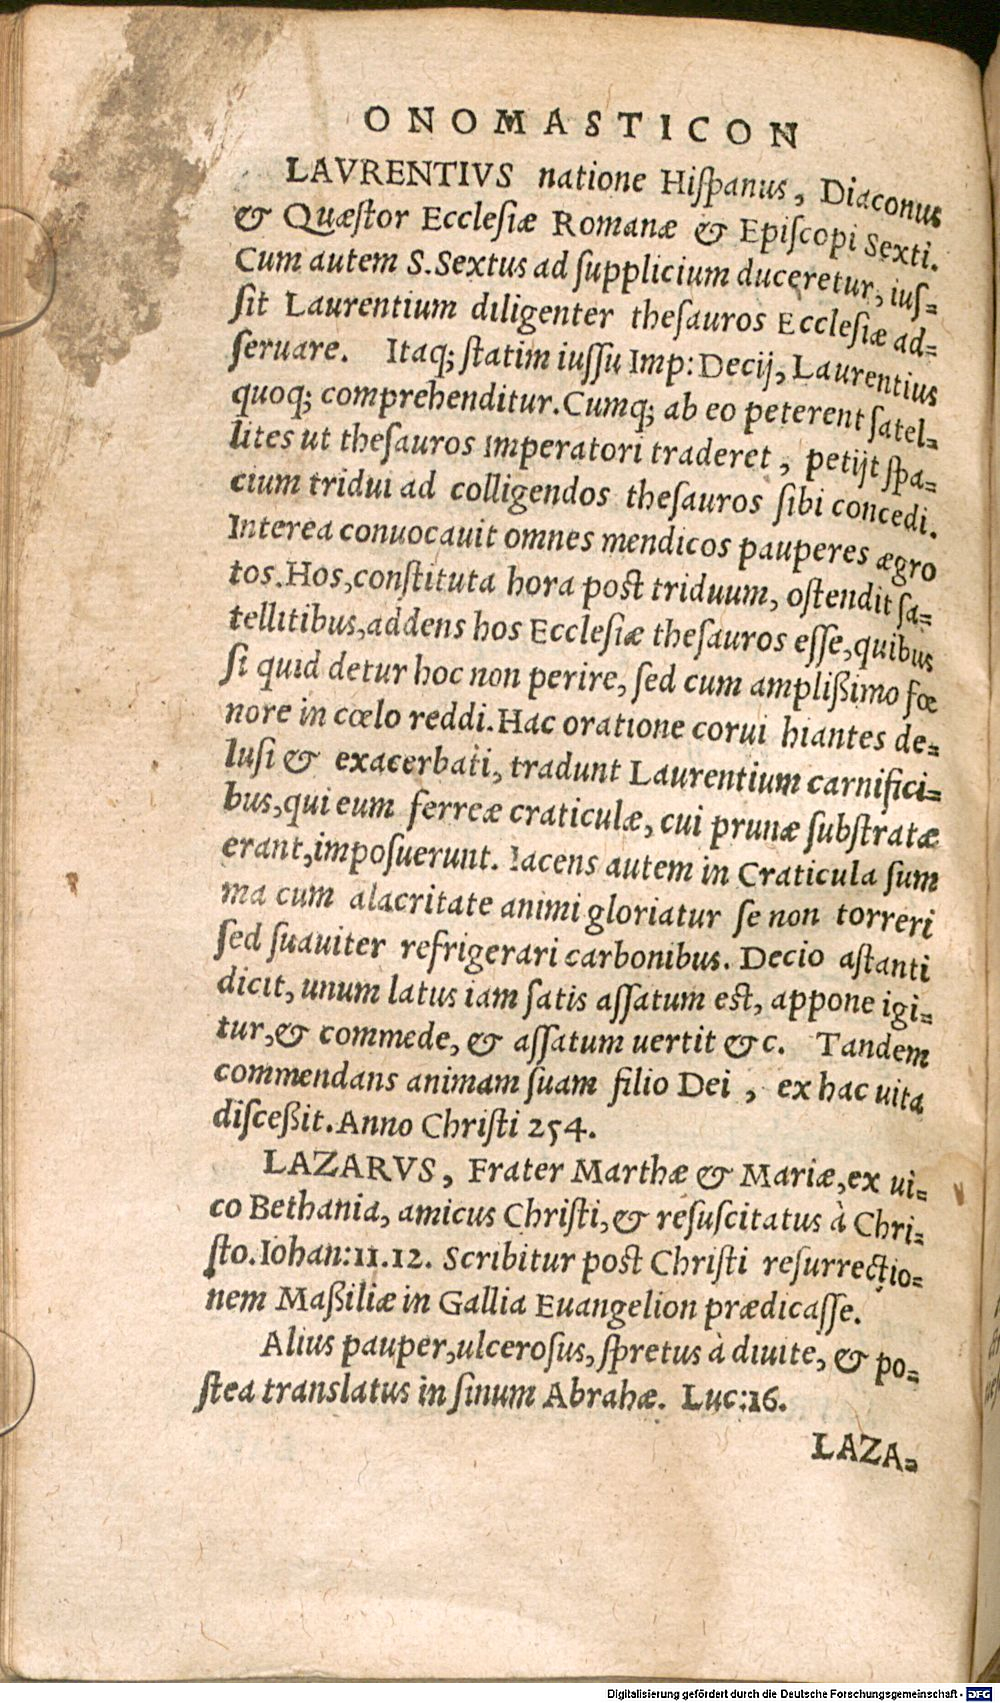 ONOMASTICON
LAVRENTIVS natione Hiſpanus, Diaconus
& Quæſtor Eccleſiæ Romanæ & Epiſcopi Sexti.
Cum autem S. Sextus ad ſupplicium duceretur, iuſ⸗
ſit Laurentium diligenter theſauros Eccleſiæ ad⸗
ſeruare. Itaq; ſtatim iuſſu Imp: Decij, Laurentius
quoq; comprehenditur. Cumq; ab eo peterent ſatel⸗
lites ut theſauros Imperatori traderet, petijt ſpa⸗
cium tridui ad colligendos theſauros ſibi concedi.
Interea conuocauit omnes mendicos pauperes ægro
tos. Hos, conſtituta hora poſt triduum, oſtendit ſa⸗
tellitibus, addens hos Eccleſiæ theſauros eſſe, quibus
ſi quid detur hoc non perire, ſed cum amplißimo fœ
nore in cœlo reddi. Hac oratione corui hiantes de⸗
luſi & exacerbati, tradunt Laurentium carnifici⸗
bus, qui eum ferreæ craticulæ, cui prunæ ſubſtratæ
erant, impoſuerunt. Iacens autem in Craticula ſum
ma cum alacritate animi gloriatur ſe non torreri
ſed ſuauiter refrigerari carbonibus. Decio aſtanti
dicit, unum latus iam ſatis aſſatum eſt, appone igi⸗
tur, & commede, & aſſatum uertit & c. Tandem
commendans animam ſuam filio Dei, ex hac uita
diſceßit. Anno Chriſti 254.
LAZARVS, Frater Marthæ & Mariæ, ex ui⸗
co Bethania, amicus Chriſti, & reſuſcitatus à Chri⸗
ſto. Iohan: 11. 12. Scribitur poſt Chriſti reſurrectio⸗
nem Maßiliæ in Gallia Euangelion prædicaſſe.
Alius pauper, ulceroſus, ſpretus à diuite, & po⸗
ſtea translatus in ſinum Abrahæ. Luc: 16.
LAZA⸗
Digitalisierung gefördert durch die Deutsche Forschungsgemeinschaft - DFG